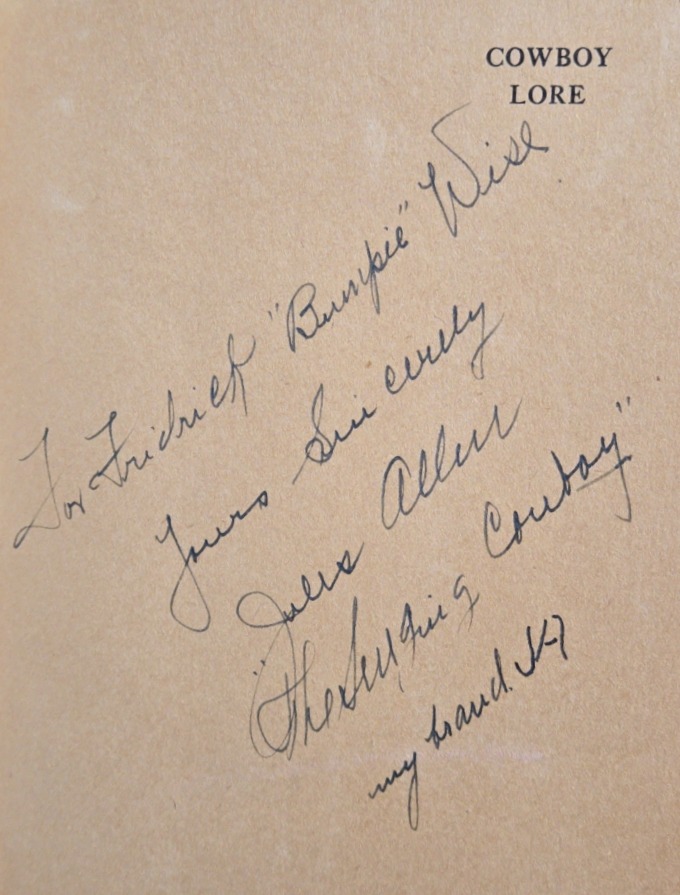 COWBOY
LORE
For Fridrick "Bumpie" Wise
Yours Sincerely
Jules Allen
"The Singing Cowboy"
my brand